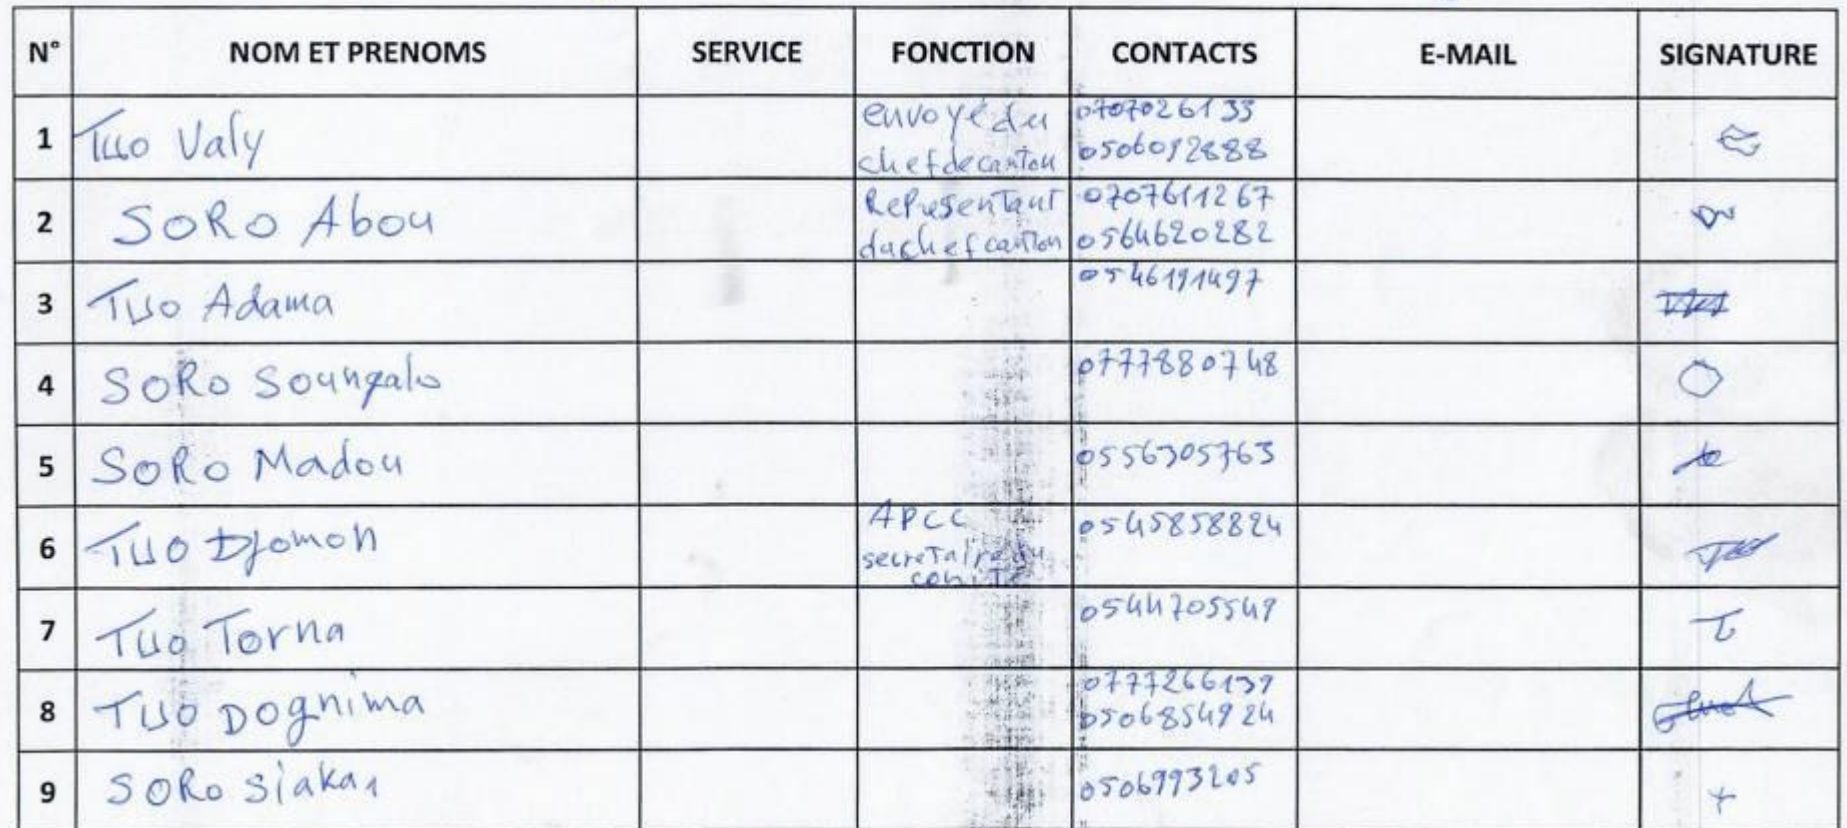 N° NOM ET PRENOMS SERVICE FONCTION CONTACTS E-MAIL SIGNATURE
1 Tuo Valy envoyé du chef de canton 0707026133
0506092888
2 SORO Abou Representant du chef canton 0707611267
0564620282
3 Tuo Adama 0546191497
4 SORO Soungalo 0777880748
5 SORO Madou 0556305763
6 TUO Djomon APCC secretaire du comité 0545858824
7 Tuo Torna 0544705549
8 TUO Dognima 0777266139
0506854924
9 SORO Siaka 1 0506993205